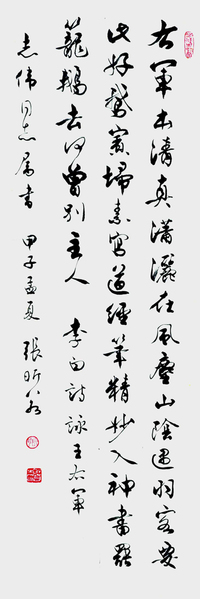 右軍本清真瀟灑在風塵山陰遇羽客要
此好鵞賓埽素寫道經筆精妙入神書罷
籠鵝去何曾別主人 李白詩詠王右軍
志偉同志屬書 甲子孟夏 張昕若